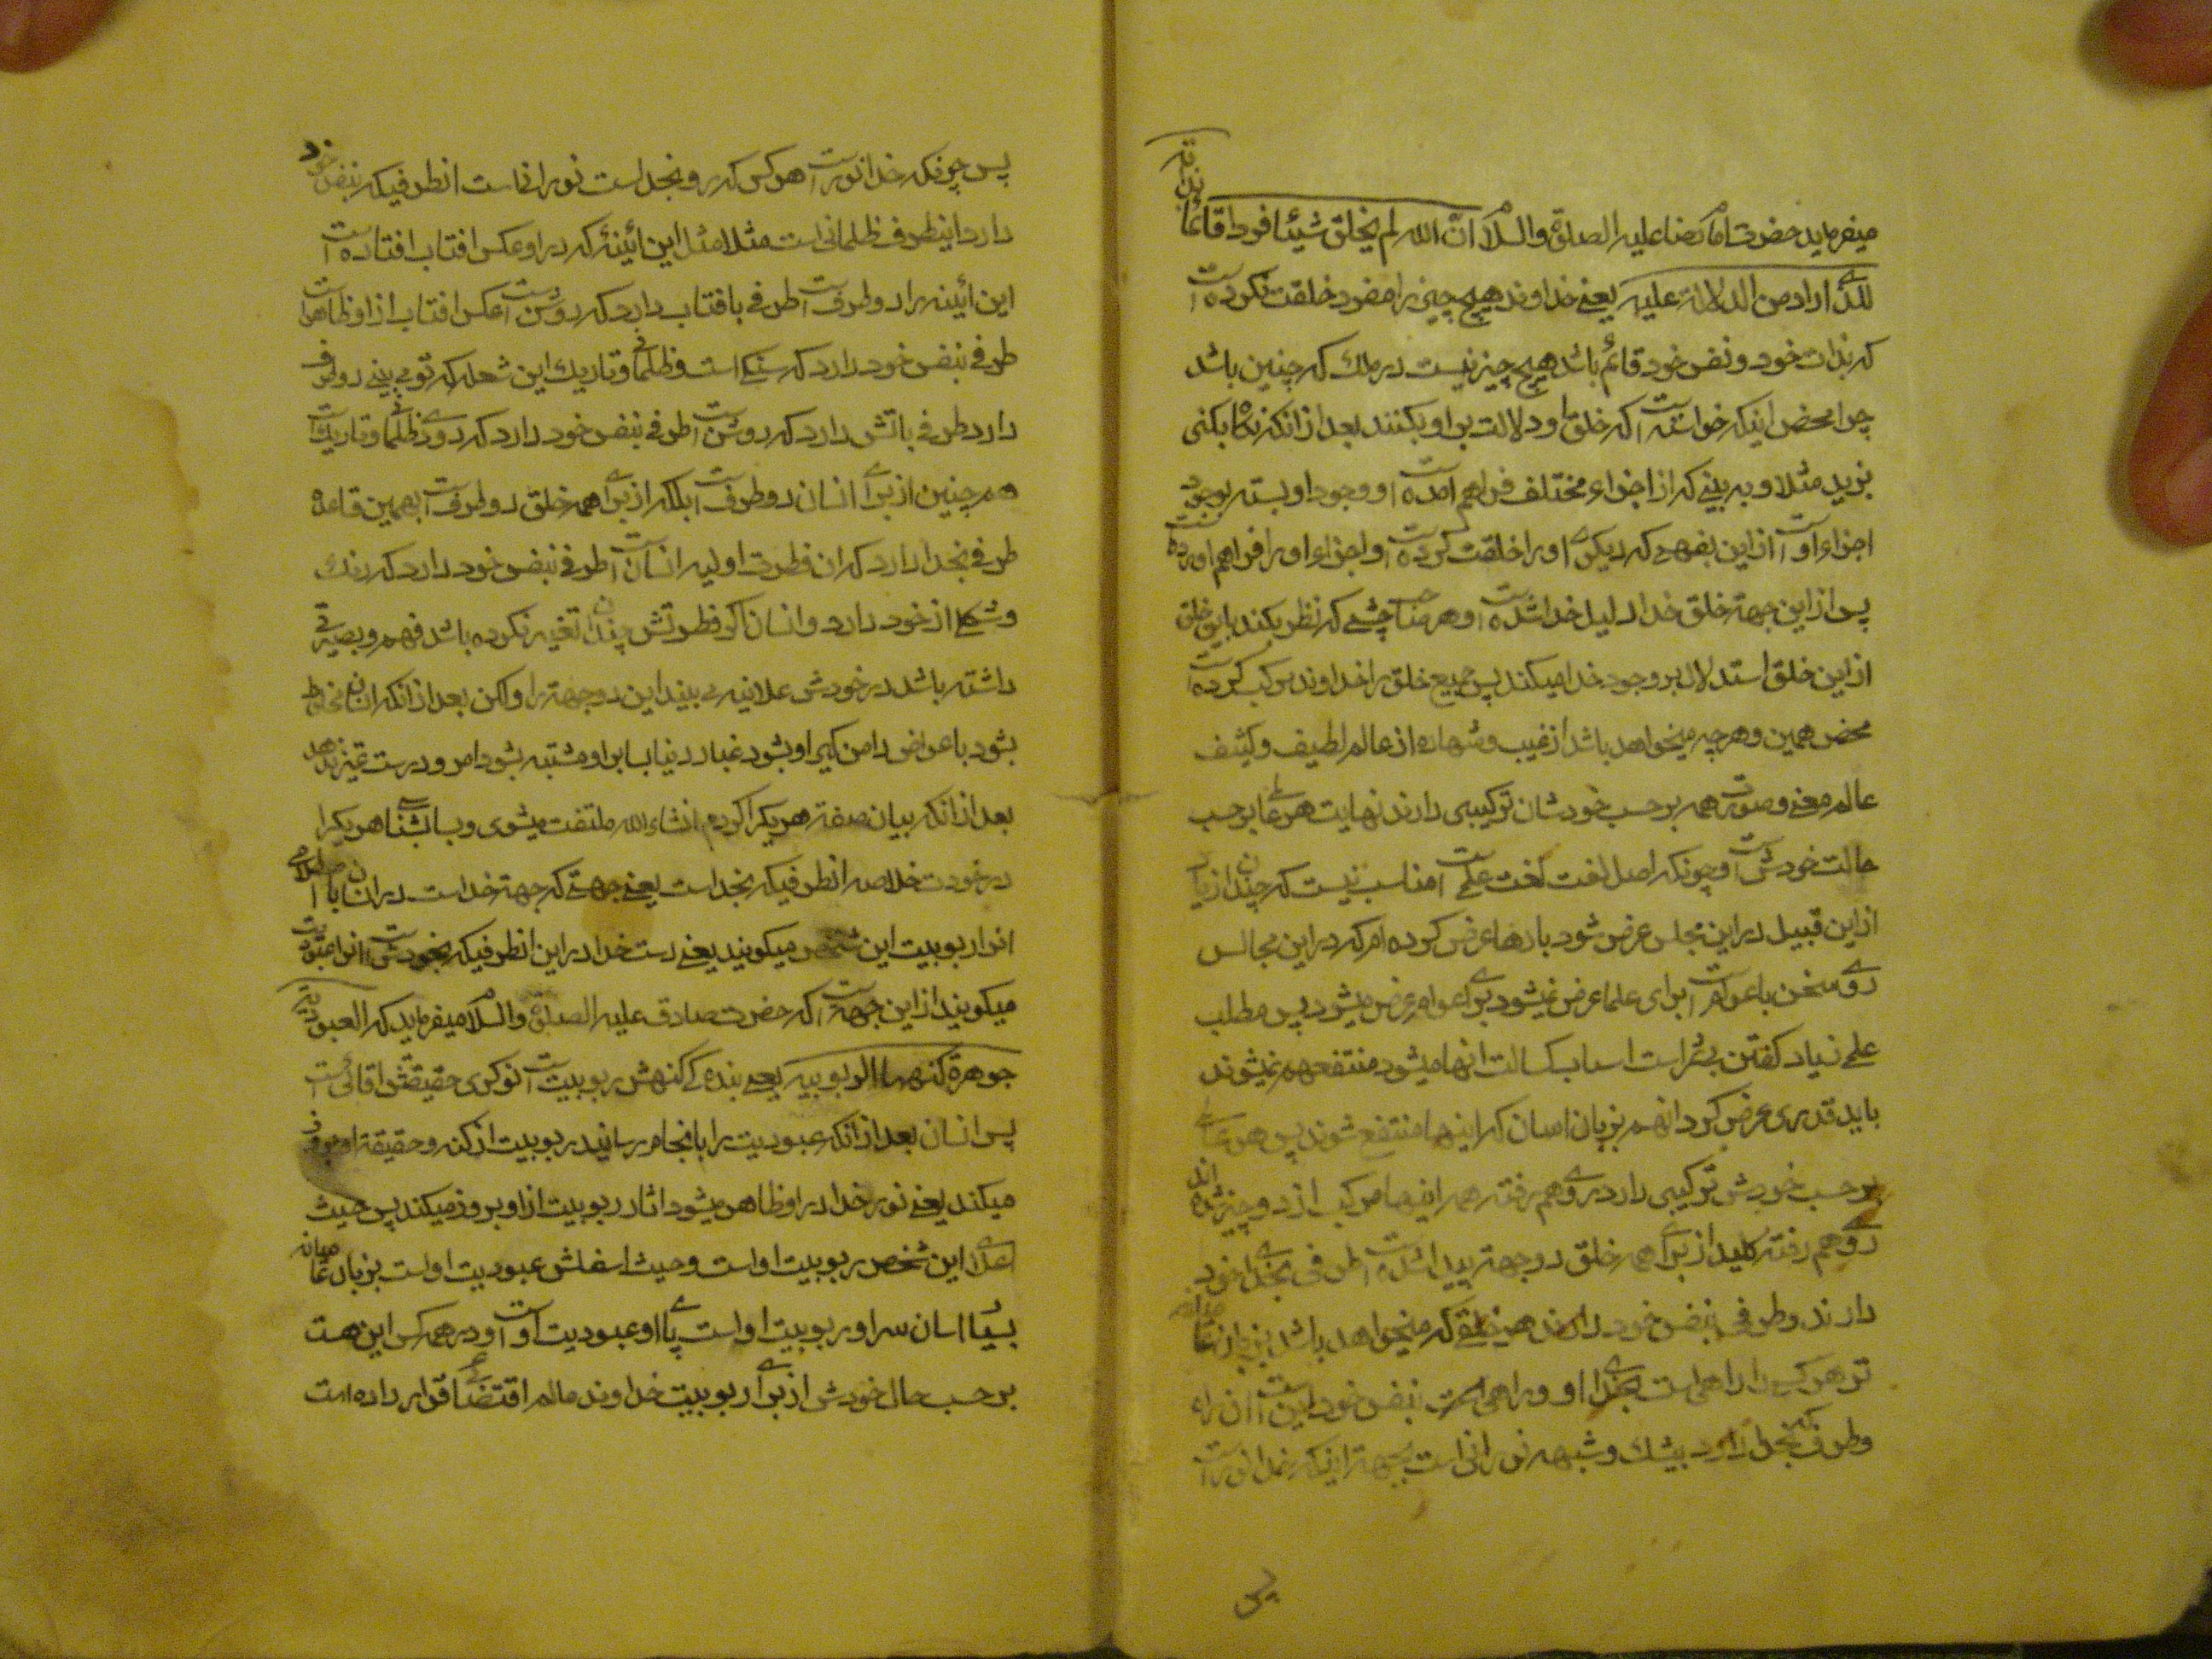 میفرماید حضرت امام رضا علیه الصلوة والسلام ان الله لم یخلق شیئا فردا قائما بذاته
للذی اراد من الدلالة علیه یعنی خداوند هیچ چیز را مفرد خلقت نکرده است
که بذات خود و نفس خود قائم باشد هیچ چیز نیست در ملك که چنین باشد
چرا محض اینکه خواسته است که خلق او دلالت بر او بکنند بعد از انکه نگاه بکنی
بزید مثلا و به بینی که از اجزاء مختلف فراهم آمده است و وجود او بسته بوجود
اجزاء اوست از این بفهمی که دیگری او را خلقت کرده است و اجزاء او را فراهم اورده است
پس از این جهة خلق خدا دلیل خدا شده است و هر صاحب چشمی که نظر بکند باین خلق
از این خلق استدلال بر وجود خدا میکند پس جمیع خلق را خداوند مرکب کرده است
محض همین و هرچه میخواهد باشد از غیب و شهاده از عالم لطیف و کثیف
عالم معنی و صورت همه بر حسب خودشان ترکیبی دارند نهایت هر عالمی بر حسب
حالت خودش است و چونکه اصل لغت لغت علمی است مناسب نیست که چندان زیاد
از این قبیل در این مجلس عرض شود بارها عرض کرده ام که در این مجالس
روی سخن با عوام است برای علما عرض نمیشود برای عوام عرض میشود پس مطلب
علمی زیاد گفتن بی ثمر است اسباب کسالت انها میشود منتفع هم نمیشوند
باید قدری عرض کرد انهم بزبان اسان که اینها منتفع شوند پس هر عالمی
بر حسب خودش ترکیبی دارد روی هم رفته همه اینها مرکب از دو چیز شده اند
روی هم رفته کلید از برای همه خلق دو جهة پیدا شده است طرفی بخدای خود
دارند و طرفی بنفس خود دارند هر خلقی که میخواهد باشد بزبان عامیانه
تر هر کسی را راهی است بخدای او و راهی است بنفس خود این است ان راه
و طرف که بخدا دارد بیشك و شبهه نورانی است بجهة اینکه خدا نور است
پس
پس چونکه خدا نور است هر کس که رو بخداست نورانی است انطرفیکه بنفس خود
دارد اینطرف ظلمانی است مثلا مثل این ائینهٔ که در او عکس افتاب افتاده است
این ائینه را دو طرف است طرفی بافتاب دارد که روشن است عکس افتاب از او ظاهر است
طرفی بنفس خود دارد که سنگی است و ظلمانی و تاریك این شعله که تو می بینی دو طرف
دارد طرفی باتش دارد که روشن است طرفی بنفس خود دارد که دودی ظلمانی و تاریك است
هم چنین از برای انسان دو طرف است بلکه از برای همه خلق دو طرف است بهمین قاعده
طرفی بخدا دارد که ان فطرت اولیه انسان است طرفی بنفس خود دارد که رنگ
و شکلی از خود دارد و انسان اگر فطرتش چندان تغییر نکرده باشد فهم و بصیرتی
داشته باشد در خودش علانیه می بیند این دو جهة را ولکن بعد از انکه انسان مخلوط
بشود باعراض دامن گیر او بشود غبار دنیا بسا بر او مشتبه بشود امر و درست تمیز ندهد
بعد از انکه بیان صفة هر یکرا کردم انشاء الله ملتفت میشوی و بسا بشناسی هر یکرا
در خودت خلاصه انطرفیکه بخداست یعنی جهتی که جهة خداست در ان بزبان اصطلاحی
انرا ربوبیت این شخص میگویند یعنی دست خدا در این انطرفیکه بخودش است انرا عبودیت
میگویند از این جهة است که حضرت صادق علیه الصلوة والسلام میفرماید که العبودیة
جوهرة کنهها الربوبیة یعنی بندگی کنهش ربوبیت است نوکری حقیقتش اقائی است
پس انسان بعد از انکه عبودیت را بانجام رسانید ربوبیت از کنه و حقیقة او بروز
میکند یعنی نور خدا در او ظاهر میشود اثار ربوبیت از او بروز میکند پس حیث
اعلای این شخص ربوبیت اوست و حیث اسفلش عبودیت اوست بزبان عامیانه
بسیار اسان سر او ربوبیت اوست پای او عبودیت اوست و در همه کس این هست
بر حسب حال خودش از برای ربوبیت خداوند عالم اقتضائی قرار داده است